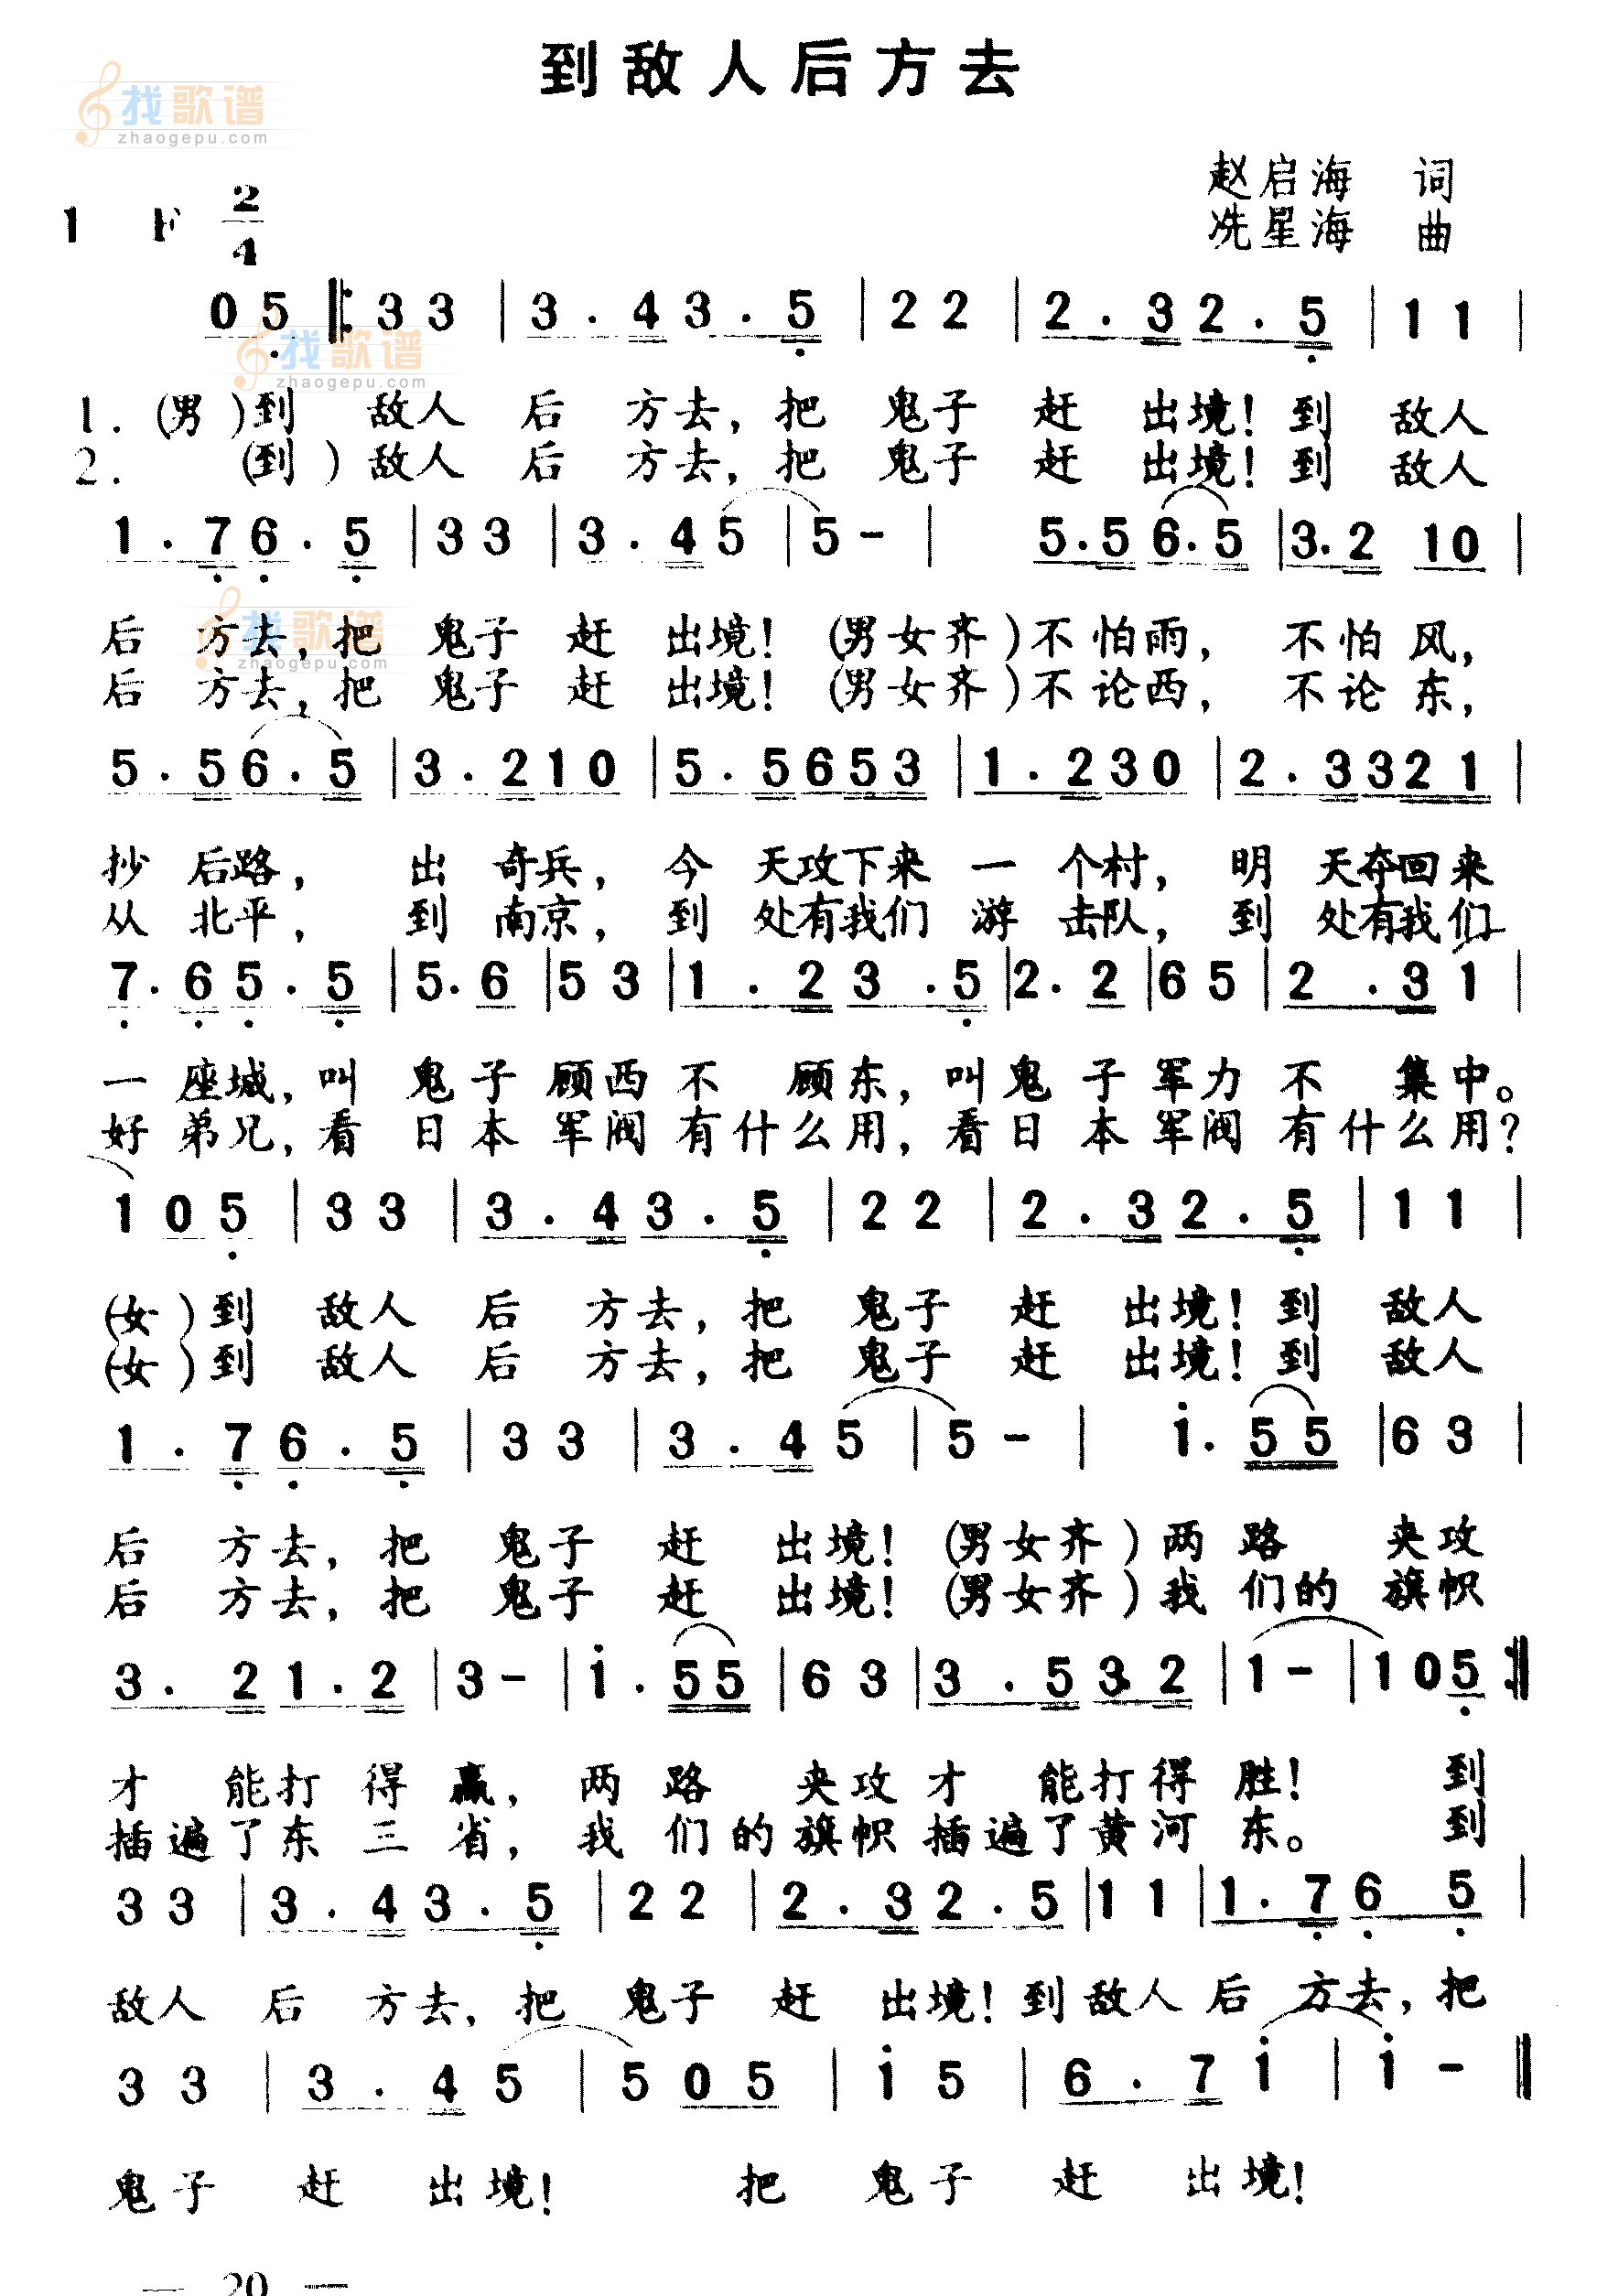 到敌人后方去
找歌谱
zhaogepu.com
赵启海 词
1 F 2/4
冼星海 曲
0 5 |: 3 3 | 3 . 4 3 . 5 | 2 2 | 2 . 3 2 . 5 | 1 1 |
找歌谱
zhaogepu.com
1.(男)到 敌人 后 方去,把 鬼子 赶 出境!到 敌人
2. (到)敌人 后 方去,把 鬼子 赶 出境!到 敌人
1 . 7 6 . 5 | 3 3 | 3 . 4 5 | 5 - | 5 . 5 6 . 5 | 3 . 2 1 0 |
找歌谱
zhaogepu.com
后 方去,把 鬼子 赶 出境!(男女齐)不怕雨, 不怕风,
后 方去,把 鬼子 赶 出境!(男女齐)不论西, 不论东,
5 . 5 6 . 5 | 3 . 2 1 0 | 5 . 5 6 5 3 | 1 . 2 3 0 | 2 . 3 3 2 1 |
抄 后路, 出 奇兵,今 天攻下来 一 个村, 明 天夺回来
从 北平, 到 南京,到 处有我们 游 击队, 到 处有我们
7 . 6 5 . 5 | 5 . 6 | 5 3 | 1 . 2 3 . 5 | 2 . 2 | 6 5 | 2 . 3 1 |
一 座城,叫 鬼子 顾西不 顾东,叫鬼 子 军力 不 集中。
好 弟兄,看 日本 军阀 有什么用,看日 本 军阀 有什么用?
1 0 5 | 3 3 | 3 . 4 3 . 5 | 2 2 | 2 . 3 2 . 5 | 1 1 |
(女)到 敌人 后 方去,把 鬼子 赶 出境!到 敌人
(女)到 敌人 后 方去,把 鬼子 赶 出境!到 敌人
1 . 7 6 . 5 | 3 3 | 3 . 4 5 | 5 - | i . 5 5 | 6 3 |
后 方去,把 鬼子 赶 出境!(男女齐)两路 夹攻
后 方去,把 鬼子 赶 出境!(男女齐)我们的 旗帜
3 . 2 1 . 2 | 3 - | i . 5 5 | 6 3 | 3 . 5 3 2 | 1 - | 1 0 5 :||
才 能打 得 赢, 两 路 夹攻 才 能打得 胜! 到
插遍了东 三 省, 我们的旗帜 插遍了黄河 东。 到
3 3 | 3 . 4 3 . 5 | 2 2 | 2 . 3 2 . 5 | 1 1 | 1 . 7 6 5 |
敌人 后 方去,把 鬼子 赶 出境!到敌人 后 方去,把
3 3 | 3 . 4 5 | 5 0 5 | i 5 | 6 . 7 i | i - ||
鬼子 赶 出境! 把 鬼子 赶 出境!
— 20 —